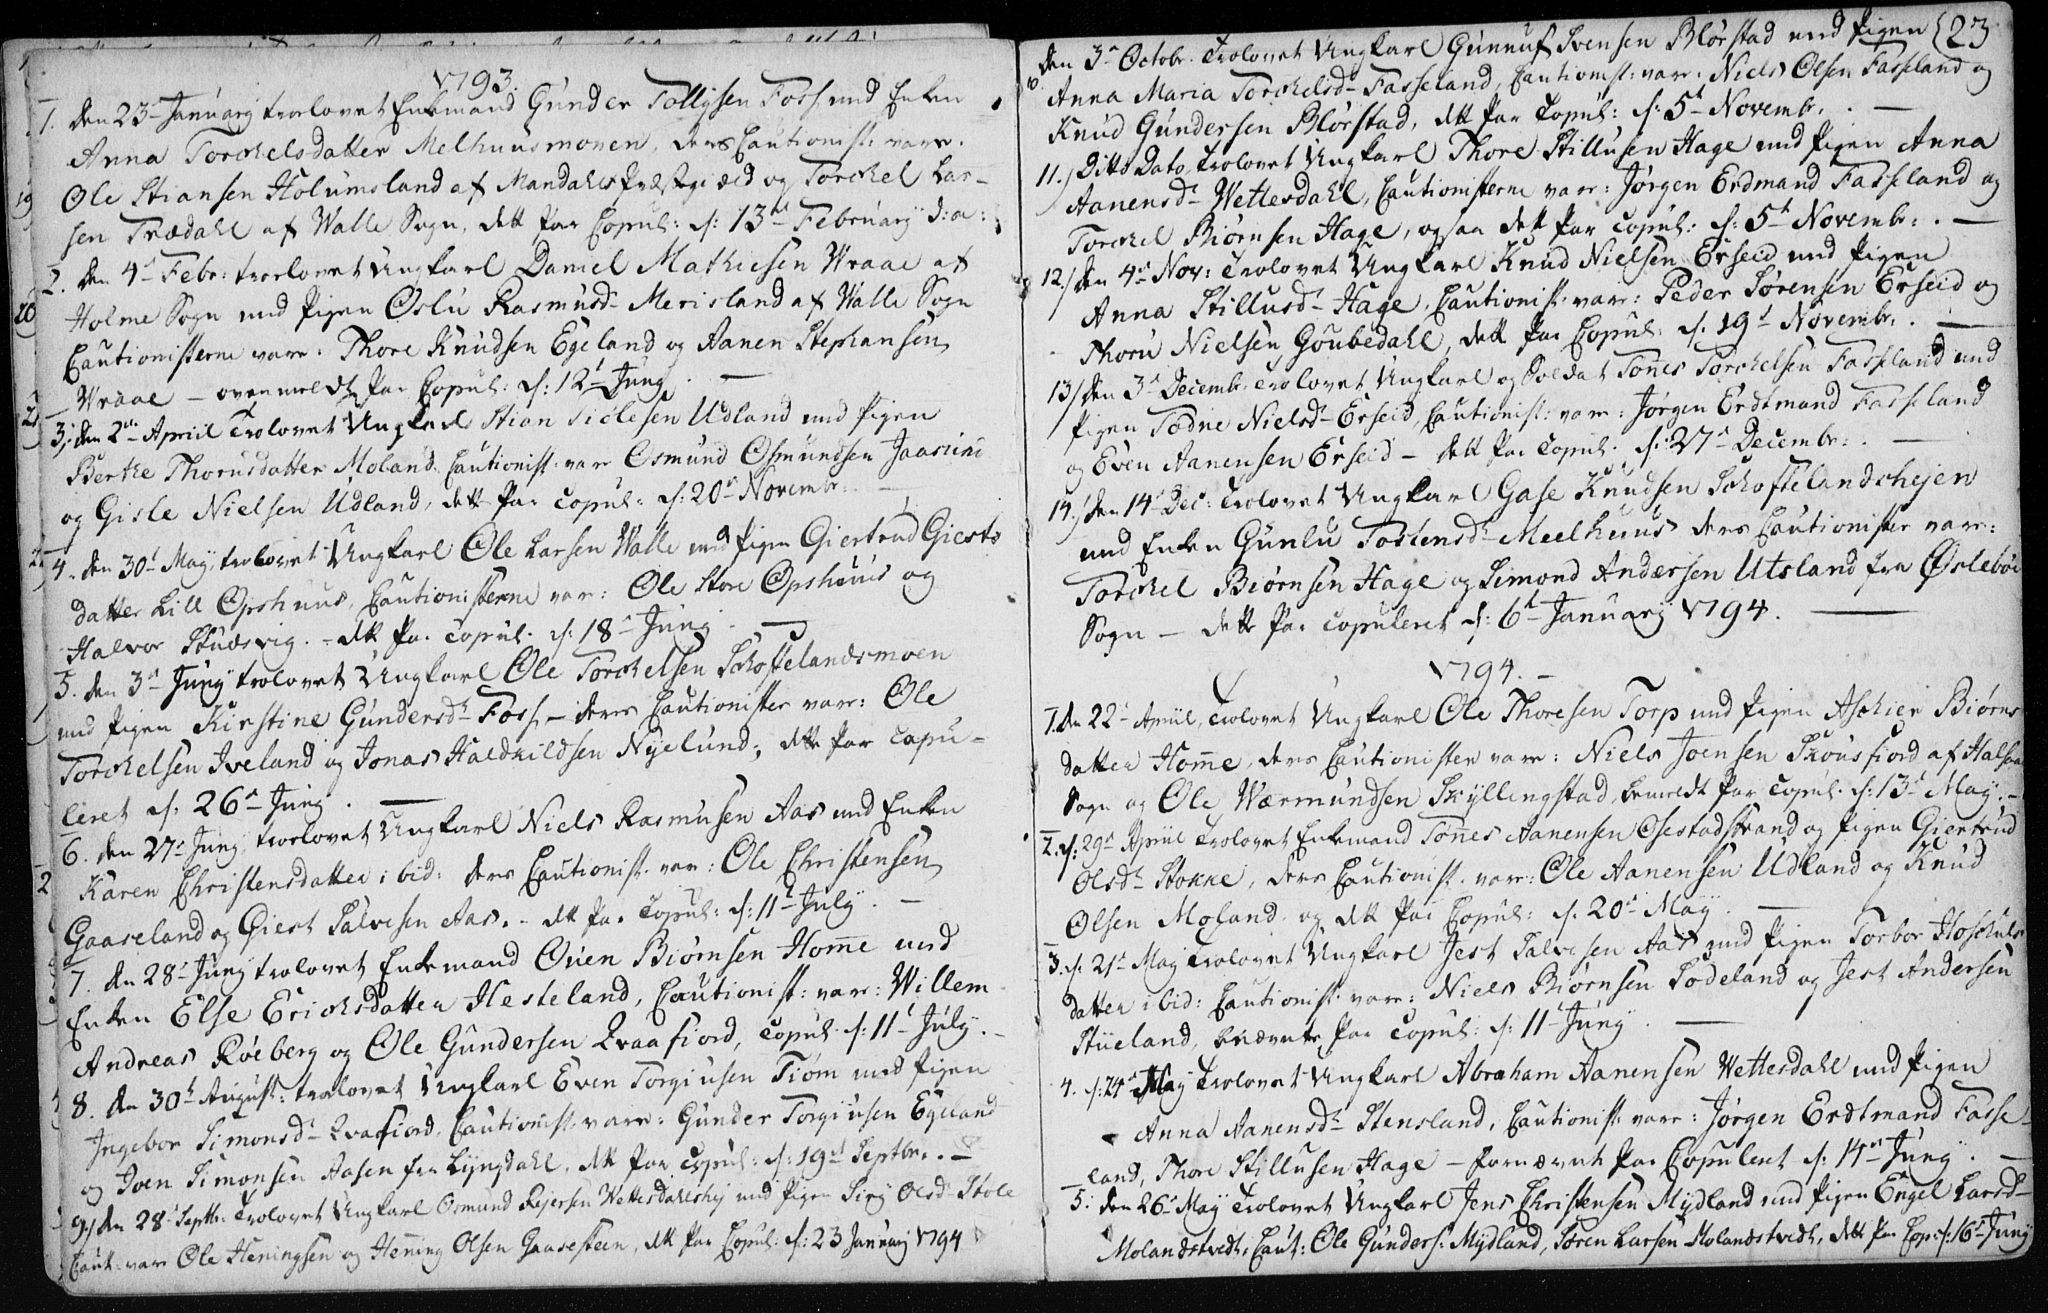 1793.
1. den 23de Januarij trorlovet Enkemand Gunder Tollysen Foss med Enken
Anna Torckelsdatter Melhuusmonen, deres Cautionist: vare.
Ole Stiansen Holumsland af Mandahls Præstegield og Torckel Lar-
sen Trædahl af Walle Sogn, dette Par Copul: d: 13de Februarij d:a:
2. den 4de Febr: trorlovet Ungkarl Daniel Mathiesen Wraae af
Holme Sogn med Pigen Oslu Rasmusd- Merisland af Walle Sogn
Cautionisterne vare: Thore Knudsen Egeland og Aanen Stephansen
Wraae – ovenmeldte Par Copul: d: 12te Junij. —
3. den 2den April Trolovet Ungkarl Stian Siclesen Udland med Pigen
Berthe Thorusdatter Moland Cautionist: var Osmund Osmundsen Jaasund
og Gisle Nielsen Udland, dette Par Copul: d: 20de Novembr. —
4. den 30te Maij, trolovet Ungkarl Ole Larsen Walle med Pigen Giertrud Giests
datter Lill Opshuus, Cautionisterne var: Ole Store Opshuus og
Halvor Studsvig. – dette Par Copul. d: 18de Junij. —
5. den 3de Junij trolovet Ungkarl Ole Torckelsen Schoftelandsmoen
med Pigen Kirstine Gundersdr Foss, – deres Cautionister vare: Ole
Torckelsen Iveland og Jonas Haldkildsen Nyelund; dette Par Copu-
leret d: 26de Junij. —
6. den 27de Junij trorlovet Ungkarl Niels Rasmusen Aas med Enken
Karen Christensdatter ibid: deres Cautionist. var: Ole Christensen
Gaaseland og Giest Salvesen Aas. – dette Par Copul: d: 11te Julij. —
7. den 28de Junij trolovet Enkemand Ouen Biørnsen Home med
Enken Else Ericksdatter Hesteland, Cautionist: vare: Willem
Andreas Röeberg og Ole Gundersen Qvaafiord, Copul. d: 11te Julij. –
8. den 30te August: trolovet Ungkarl Even Torgiusen Tiøm med Pigen
Ingebor Simonsdr Qvafiord, Cautionist. vare: Gunder Torgiusen Egeland
og Joen Simonsen Aasen fra Lyngdahl, dette Par Copul: d: 19de Septbr. —
9. den 28de Septbr. Trolovet Ungkarl Osmund Rejersen Wettesdahlshej med Pigen Sirj Olsdr Stole
Caut: vare Ole Heningsen og Hening Olsen Gaasesteen, dette Par Copul: d: 23 Januarij 1794
23
10. den 3de Octobr. Trolovet Ungkarl Gunnuf Svensen Blørstad med Pigen
Anna Maria Torckelsdr Fasseland, Cautionist: vare: Niels Olsen Fasseland og
Knud Gundersen Blørstad, dette Par Copul: d: 5te Novembr. —
11. Ditto Dato Trolovet Ungkarl Thore Stillusen Hage med Pigen Anna
Aanensdr Wettesdahl, Cautionisterne var: Jørgen Erdmand Fasseland og
Torckel Biørnsen Hage, ogsaa dette Par Copul: d: 5te Novembr: —
12. den 4de Nov: Trolovet Ungkarl Knud Nielsen Erseid med Pigen
Anna Stillusdr Hage, Cautionist: vare: Peder Sørensen Erseid og
Thoru Nielsen Goubedahl, dette Par Copul: d. 19de Novembr. —
13. den 3de Decembr. Trolovet Ungkarl og Soldat Tönes Torckelsen Fasseland med
Pigen Tødne Nielsdr Erseid, Cautionist: var: Jørgen Erdtmand Fasseland
og Even Aanensen Erseid – dette Par Copul. d: 27de Decembr: —
14. den 14de Dec: Trolovet Ungkarl Gase Knudsen Schoftelandshejen
med Enken Gunlu Tostensdr Meelhuus deres Cautionister vare:
Torckel Biørnsen Hage og Simond Andersen Utsland fra Øslebøe
Sogn – dette Par Copuleret d: 6te Januarij 1794. —
1794. –
1. den 22de Apriil, Trolovet Ungkarl Ole Thoresen Torp med Pigen Aschier Biørns
datter Home, deres Cautionister vare: Niels Joensen Skousfiord af Halsaa
Sogn og Ole Wærmundsen Skyllingstad, bemeldte Par Copul. d: 13de Maij. –
2. d: 29de Apriil Trolovet Enkemand Tönnes Aanensen Osestadstrand og Pigen Giertrud
Olsdr Stokke, deres Cautionist. vare: Ole Aanensen Udland og Knud
Olsen Moland og dette Par Copul: d. 20de Maij. —
3. d. 21de Maij Trolovet Ungkarl Jest Salvesen Aas med Pigen Torbor Hoschuls
datter ibid: Cautionist. vare: Niels Biørnsen Lodeland og Jest Andersen
Stueland, benævnte Par Copul: d: 11te Junij. —
4. d: 24de Maij Trolovet Ungkarl Abraham Aanensen Wettesdahl med Pigen
Anna Aanensdr Stensland, Cautionist: vare: Jørgen Erdtmand Fasse-
land, Thore Stillusen Hage – fornævnte Par Copuleret d: 14de Junij. —
5. den 26de Maij Trolovet Ungkarl Jens Christensen Mydland med Pigen Engel Larsdr
Molandstvedt, Caut: Ole Gunders: Mydland, Søren Larsen Molandstvedt, dette Par Cop: d: 16de Junij